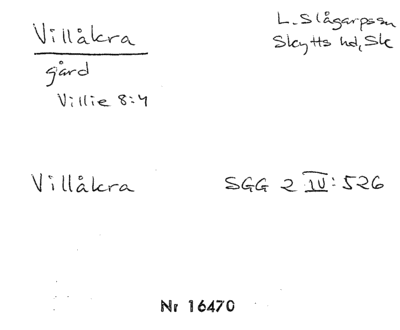 Villåkra
L. Slågarps sn
Skytts hd, Sk
gård
Villie 8:4
Villåkra
SGG 2 IV: 526
Nr 16470